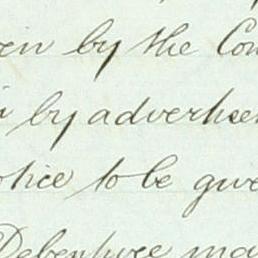 en by the Com
by advertisem
otice to be give
Debenture may